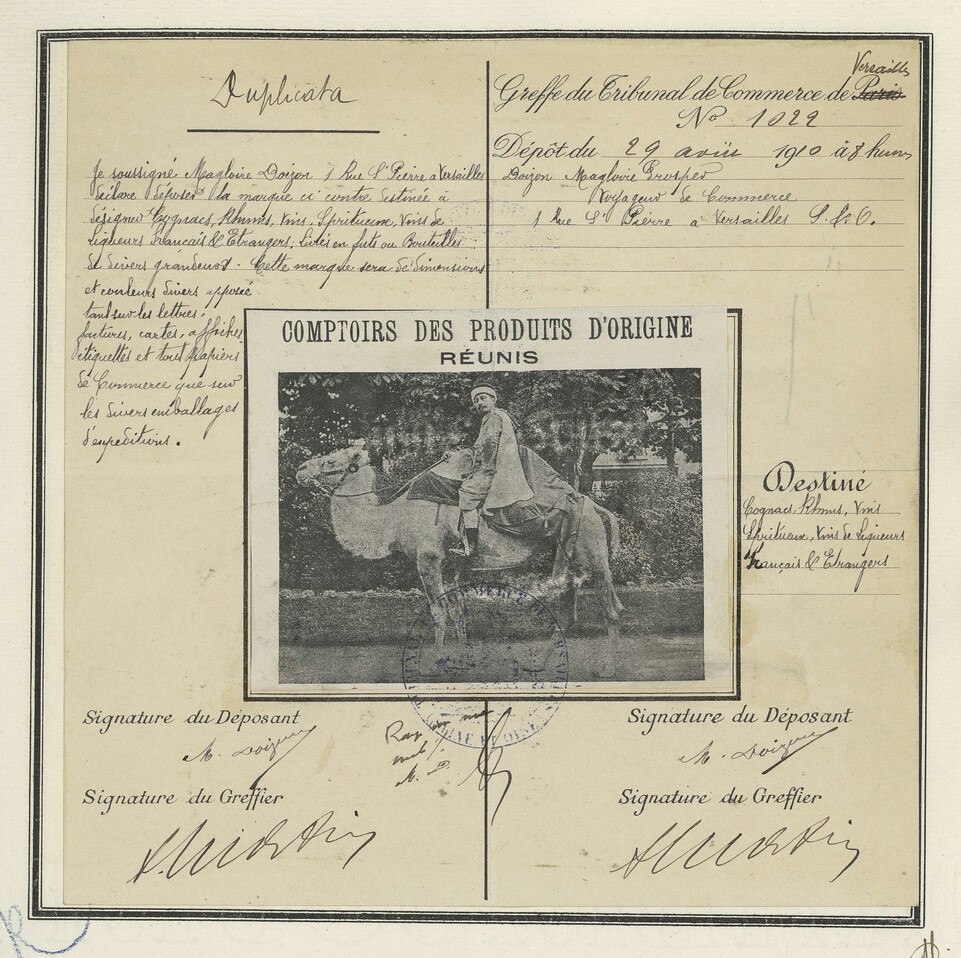 Duplicata
Je soussigné Magloire Doizon 1 Rue St Pierre a Versailles
déclare déposer la marque ci contre destinée à
désigner Cognacs, Rhums, Vins, Spiritueux, Vins de
Liqueurs Français & Etrangers, livrés en futs ou Bouteilles
de divers grandeurs. Cette marque sera de dimensions
et couleurs divers apposée
tant sur les lettres,
factures, cartes, affiches
étiquettes et tous papiers
de Commerce que sur
les divers emballages
d'expéditions.
Versailles
Greffe du Tribunal de Commerce de Paris
No 1022
Dépôt du 29 août 1910 à 8 heures
Doizon Magloire Prosper
Voyageur de Commerce
1 Rue St Pierre a Versailles S. & O.
COMPTOIRS DES PRODUITS D'ORIGINE
RÉUNIS
Destiné
Cognacs, Rhums, Vins
Spiritueux, Vins de Liqueurs
Français & Etrangers
TRIBUNAL DE COMMERCE DE VERSAILLES
SEINE ET OISE
Signature du Déposant
M. Doizon
Signature du Greffier
Ray
nul
M. D.
Signature du Déposant
M. Doizon
Signature du Greffier